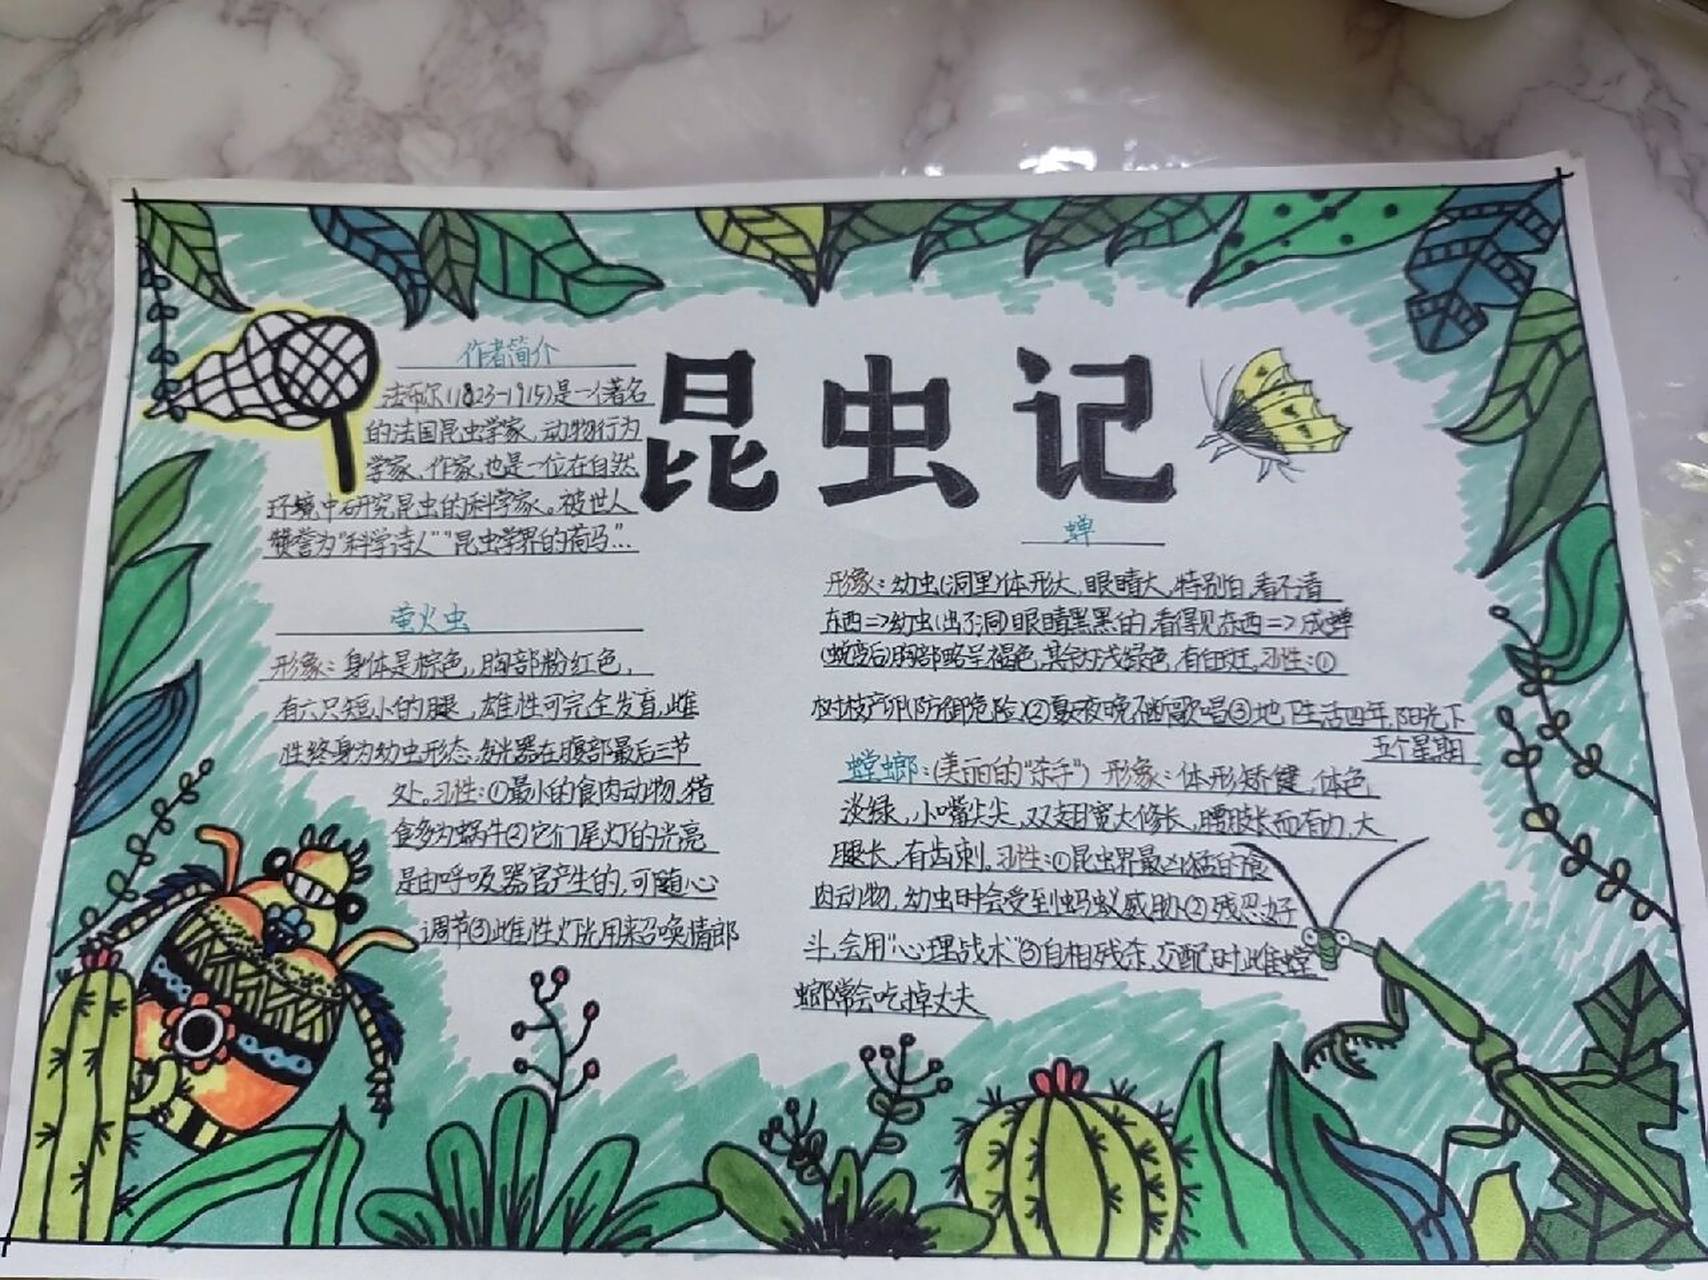 昆虫记
作者简介
法布尔(1823-1915)是一个著名
的法国昆虫学家、动物行为
学家、作家,也是一位在自然
环境中研究昆虫的科学家。被世人
赞誉为“科学诗人”“昆虫学界的荷马”…
萤火虫
形象:身体是棕色,胸部粉红色,
有六只短小的腿,雄性可完全发育,雌
性终身为幼虫形态,发光器在腹部最后三节
处。习性:①最小的食肉动物,猎
食多为蜗牛②它们尾灯的光亮
是由呼吸器官产生的,可随心
调节③雌性灯光用来召唤情郎
蝉
形象:幼虫(洞里)体形大,眼睛大,特别白,看不清
东西=>幼虫(出了洞)眼睛黑黑的,看得见东西=>成蝉
(蜕变后)胸部略呈褐色,其余为浅绿色,有白斑,习性:①
树枝产卵(防御危险)②夏天夜晚不断歌唱③地下生活四年,阳光下
五个星期
螳螂:(美丽的“杀手”) 形象:体形矫健,体色
淡绿,小嘴尖尖,双翅宽大修长,腰肢长而有力,大
腿长,有齿刺。习性:①昆虫界最凶猛的食
肉动物,幼虫时会受到蚂蚁威胁②残忍好
斗,会用“心理战术”③自相残杀,交配时雌螳
螂常会吃掉丈夫